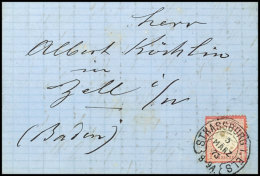 Herr
Albert Köchlin
in
Zell i/W
(Baden)
STRASSBURG I. E.
5
MÄRZ